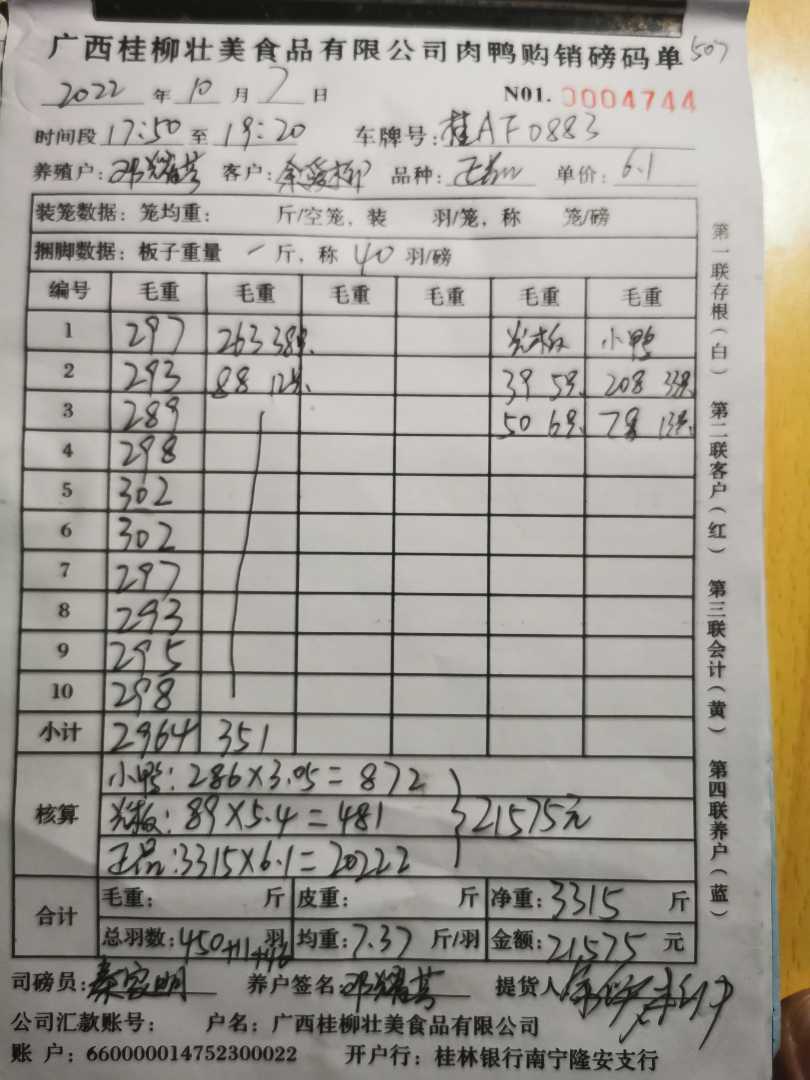 广西桂柳壮美食品有限公司肉鸭购销磅码单 507
2022 年 10 月 7 日 N01. 0004744
时间段 17:50 至 19:20 车牌号: 桂AF0883
养殖户: 邓耀芬 客户: 品种: 正品 单价: 6.1
装笼数据: 笼均重: 斤/空笼, 装 羽/笼, 称 笼/磅
捆脚数据: 板子重量 一 斤, 称 40 羽/磅
编号 毛重 毛重 毛重 毛重 毛重 毛重
1 297 263 38只 光板 小鸭
2 293 88 12只 39 5只 208 33只
3 289 50 6只 78 13只
4 298
5 302
6 302
7 297
8 293
9 295
10 298
小计 2964 351
核算
小鸭: 286×3.05=872
光板: 89×5.4=481 21575元
正品: 3315×6.1=20222
合计
毛重: 斤 皮重: 斤 净重: 3315 斤
总羽数: 450+11+46 羽 均重: 7.37 斤/羽 金额: 21575 元
司磅员: 秦家明 养户签名 邓耀芬 提货人
公司汇款账号: 户名: 广西桂柳壮美食品有限公司
账 户: 660000014752300022 开户行: 桂林银行南宁隆安支行
第一联存根(白) 第二联客户(红) 第三联会计(黄) 第四联养户(蓝)